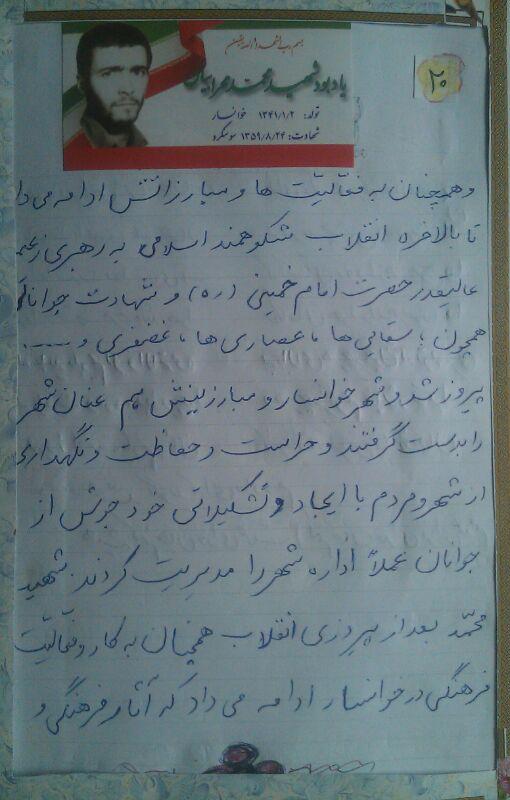 بسم رب الشهداء و الصدیقین
یادبود شهید محمد صحرائیان
تولد: ۱۳۴۱/۱/۲ خوانسار
شهادت: ۱۳۵۹/۸/۲۴ سوسنگرد
۲۰
و همچنان به فعالیت ها و مبارزاتش ادامه می دا
تا بالاخره انقلاب شکوهمند اسلامی به رهبری زعیم
عالیقدر حضرت امام خمینی (ره) و شهادت جوانان
همچون؛ سقایی ها، عصاری ها، غضنفری و .....
پیروز شد و شهر خوانسار و مبارزینش هم عنان شهر
را بدست گرفتند و حراست و حفاظت و نگهداری
از شهر و مردم با ایجاد و تشکیلاتی خود جوش از
جوانان عملاً اداره شهر را مدیریت کردند. شهید
محمّد بعد از پیروزی انقلاب همچنان به کار و فعّالیّت
فرهنگی در خوانسار ادامه می داد که آثار فرهنگی و